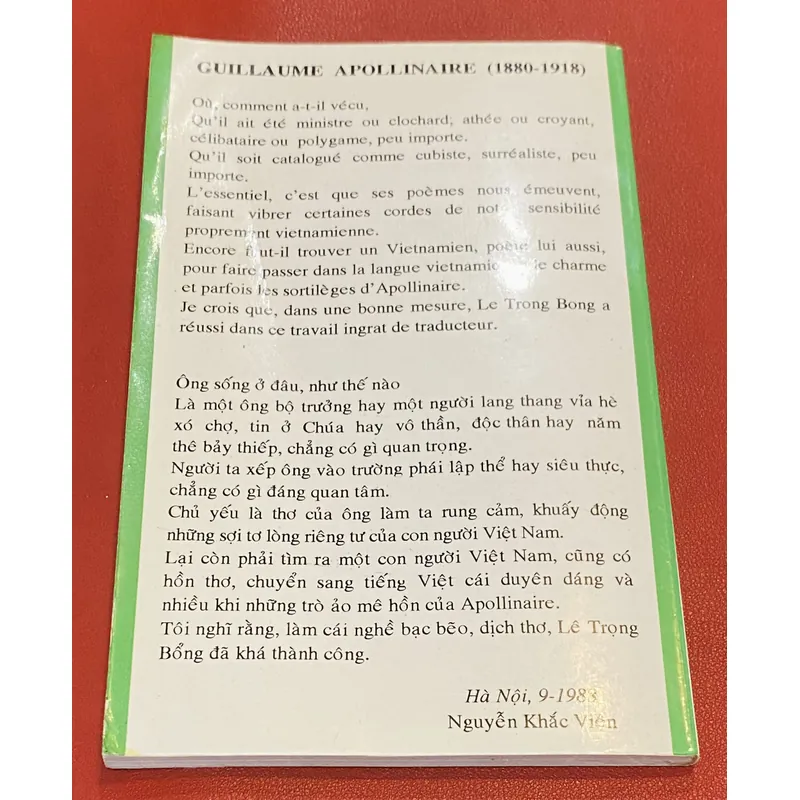 GUILLAUME APOLLINAIRE (1880-1918)
Où, comment a-t-il vécu,
Qu'il ait été ministre ou clochard, athée ou croyant,
célibataire ou polygame, peu importe.
Qu'il soit catalogué comme cubiste, surréaliste, peu
importe.
L'essentiel, c'est que ses poèmes nous émeuvent,
faisant vibrer certaines cordes de sensibilité
proprement vietnamienne.
Encore faut-il trouver un Vietnamien, poète lui aussi,
pour faire passer dans la langue le charme
et parfois les sortilèges d'Apollinaire.
Je crois que, dans une bonne mesure, Le Trong Bong a
réussi dans ce travail ingrat de traducteur.
Ông sống ở đâu, như thế nào
Là một ông bộ trưởng hay một người lang thang vỉa hè
xó chợ, tin ở Chúa hay vô thần, độc thân hay năm
thê bảy thiếp, chẳng có gì quan trọng.
Người ta xếp ông vào trường phái lập thể hay siêu thực,
chẳng có gì đáng quan tâm.
Chủ yếu là thơ của ông làm ta rung cảm, khuấy động
những sợi tơ lòng riêng tư của con người Việt Nam.
Lại còn phải tìm ra một con người Việt Nam, cũng có
hồn thơ, chuyển sang tiếng Việt cái duyên dáng và
nhiều khi những trò ảo mê hồn của Apollinaire.
Tôi nghĩ rằng, làm cái nghề bạc bẽo, dịch thơ, Lê Trọng
Bổng đã khá thành công.
Hà Nội, 9-1988
Nguyễn Khắc Viện